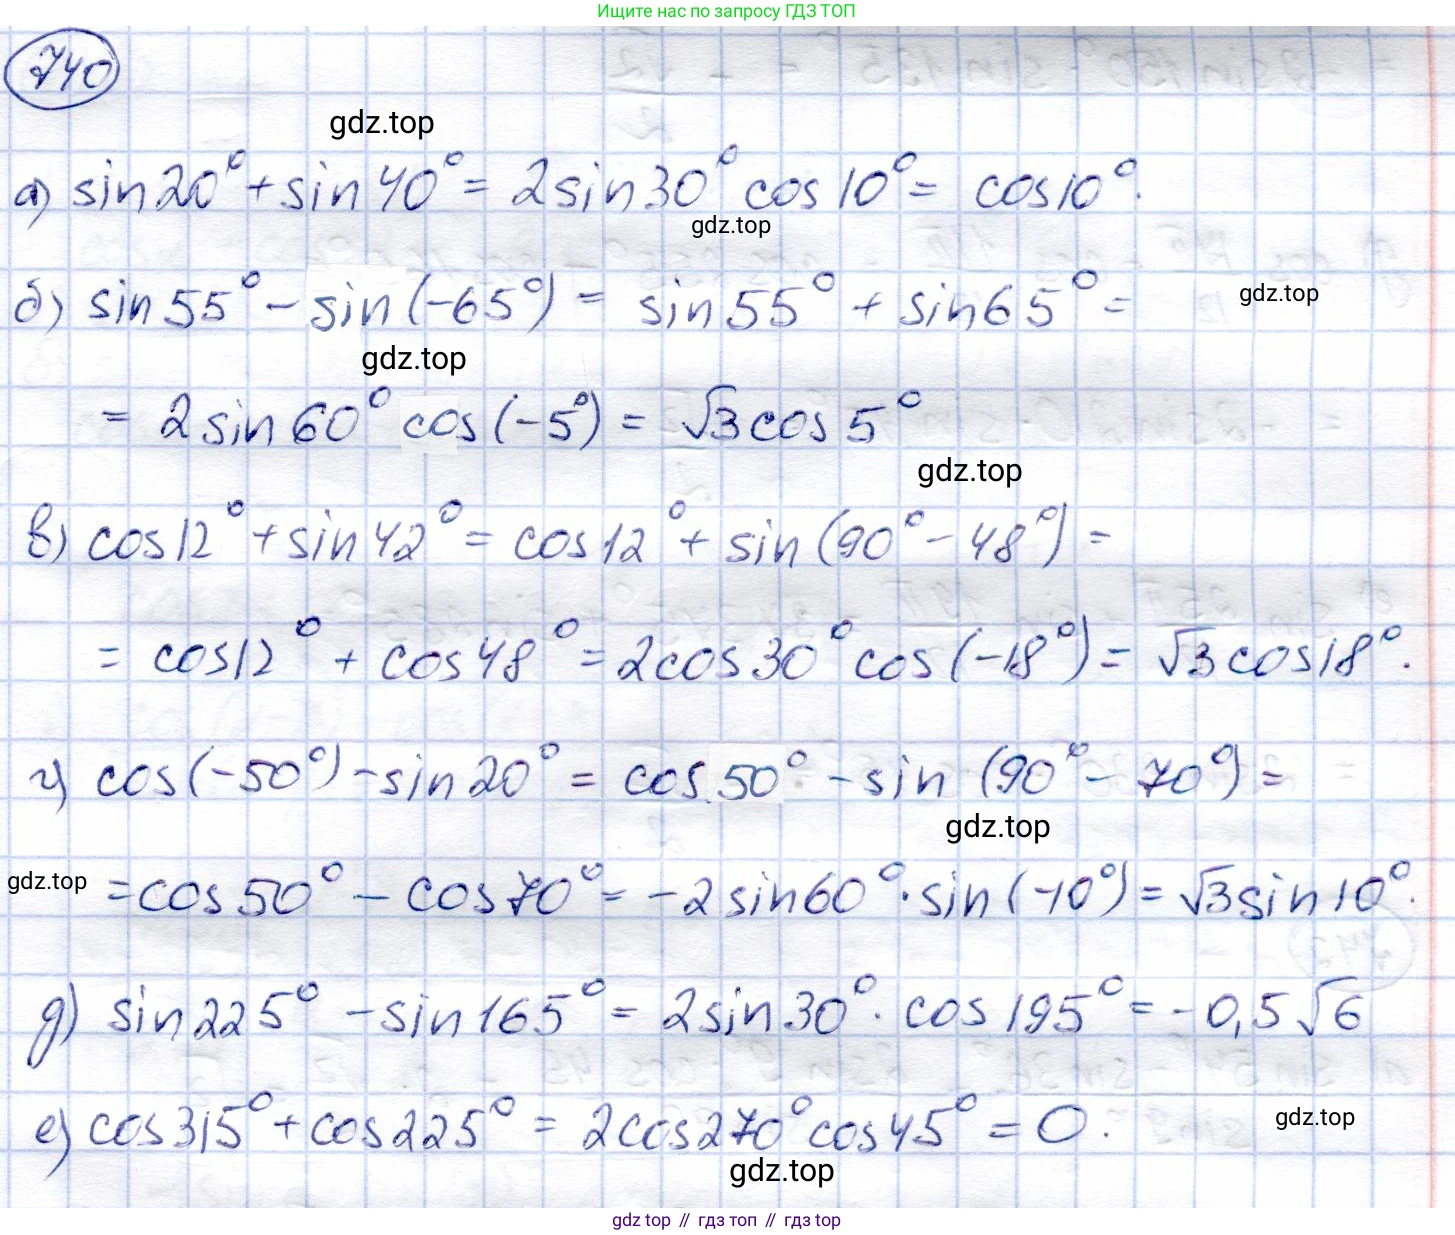 Ищите нас по запросу ГДЗ ТОП
740
gdz.top
а) sin20° + sin40° = 2sin30° cos10° = cos10°.
gdz.top
б) sin55° - sin(-65°) = sin55° + sin65° =
gdz.top
gdz.top
= 2sin60° cos(-5°) = √3cos5°
gdz.top
в) cos12° + sin42° = cos12° + sin(90° - 48°) =
= cos12° + cos48° = 2cos30° cos(-18°) = √3cos18°.
г) cos(-50°) - sin20° = cos50° - sin(90° - 70°) =
gdz.top
gdz.top
= cos50° - cos70° = -2sin60° · sin(-10°) = √3sin10°.
д) sin225° - sin165° = 2sin30° · cos195° = -0,5√6
е) cos315° + cos225° = 2cos270° cos45° = 0.
gdz.top
gdz.top
gdz top // гдз топ // гдз top